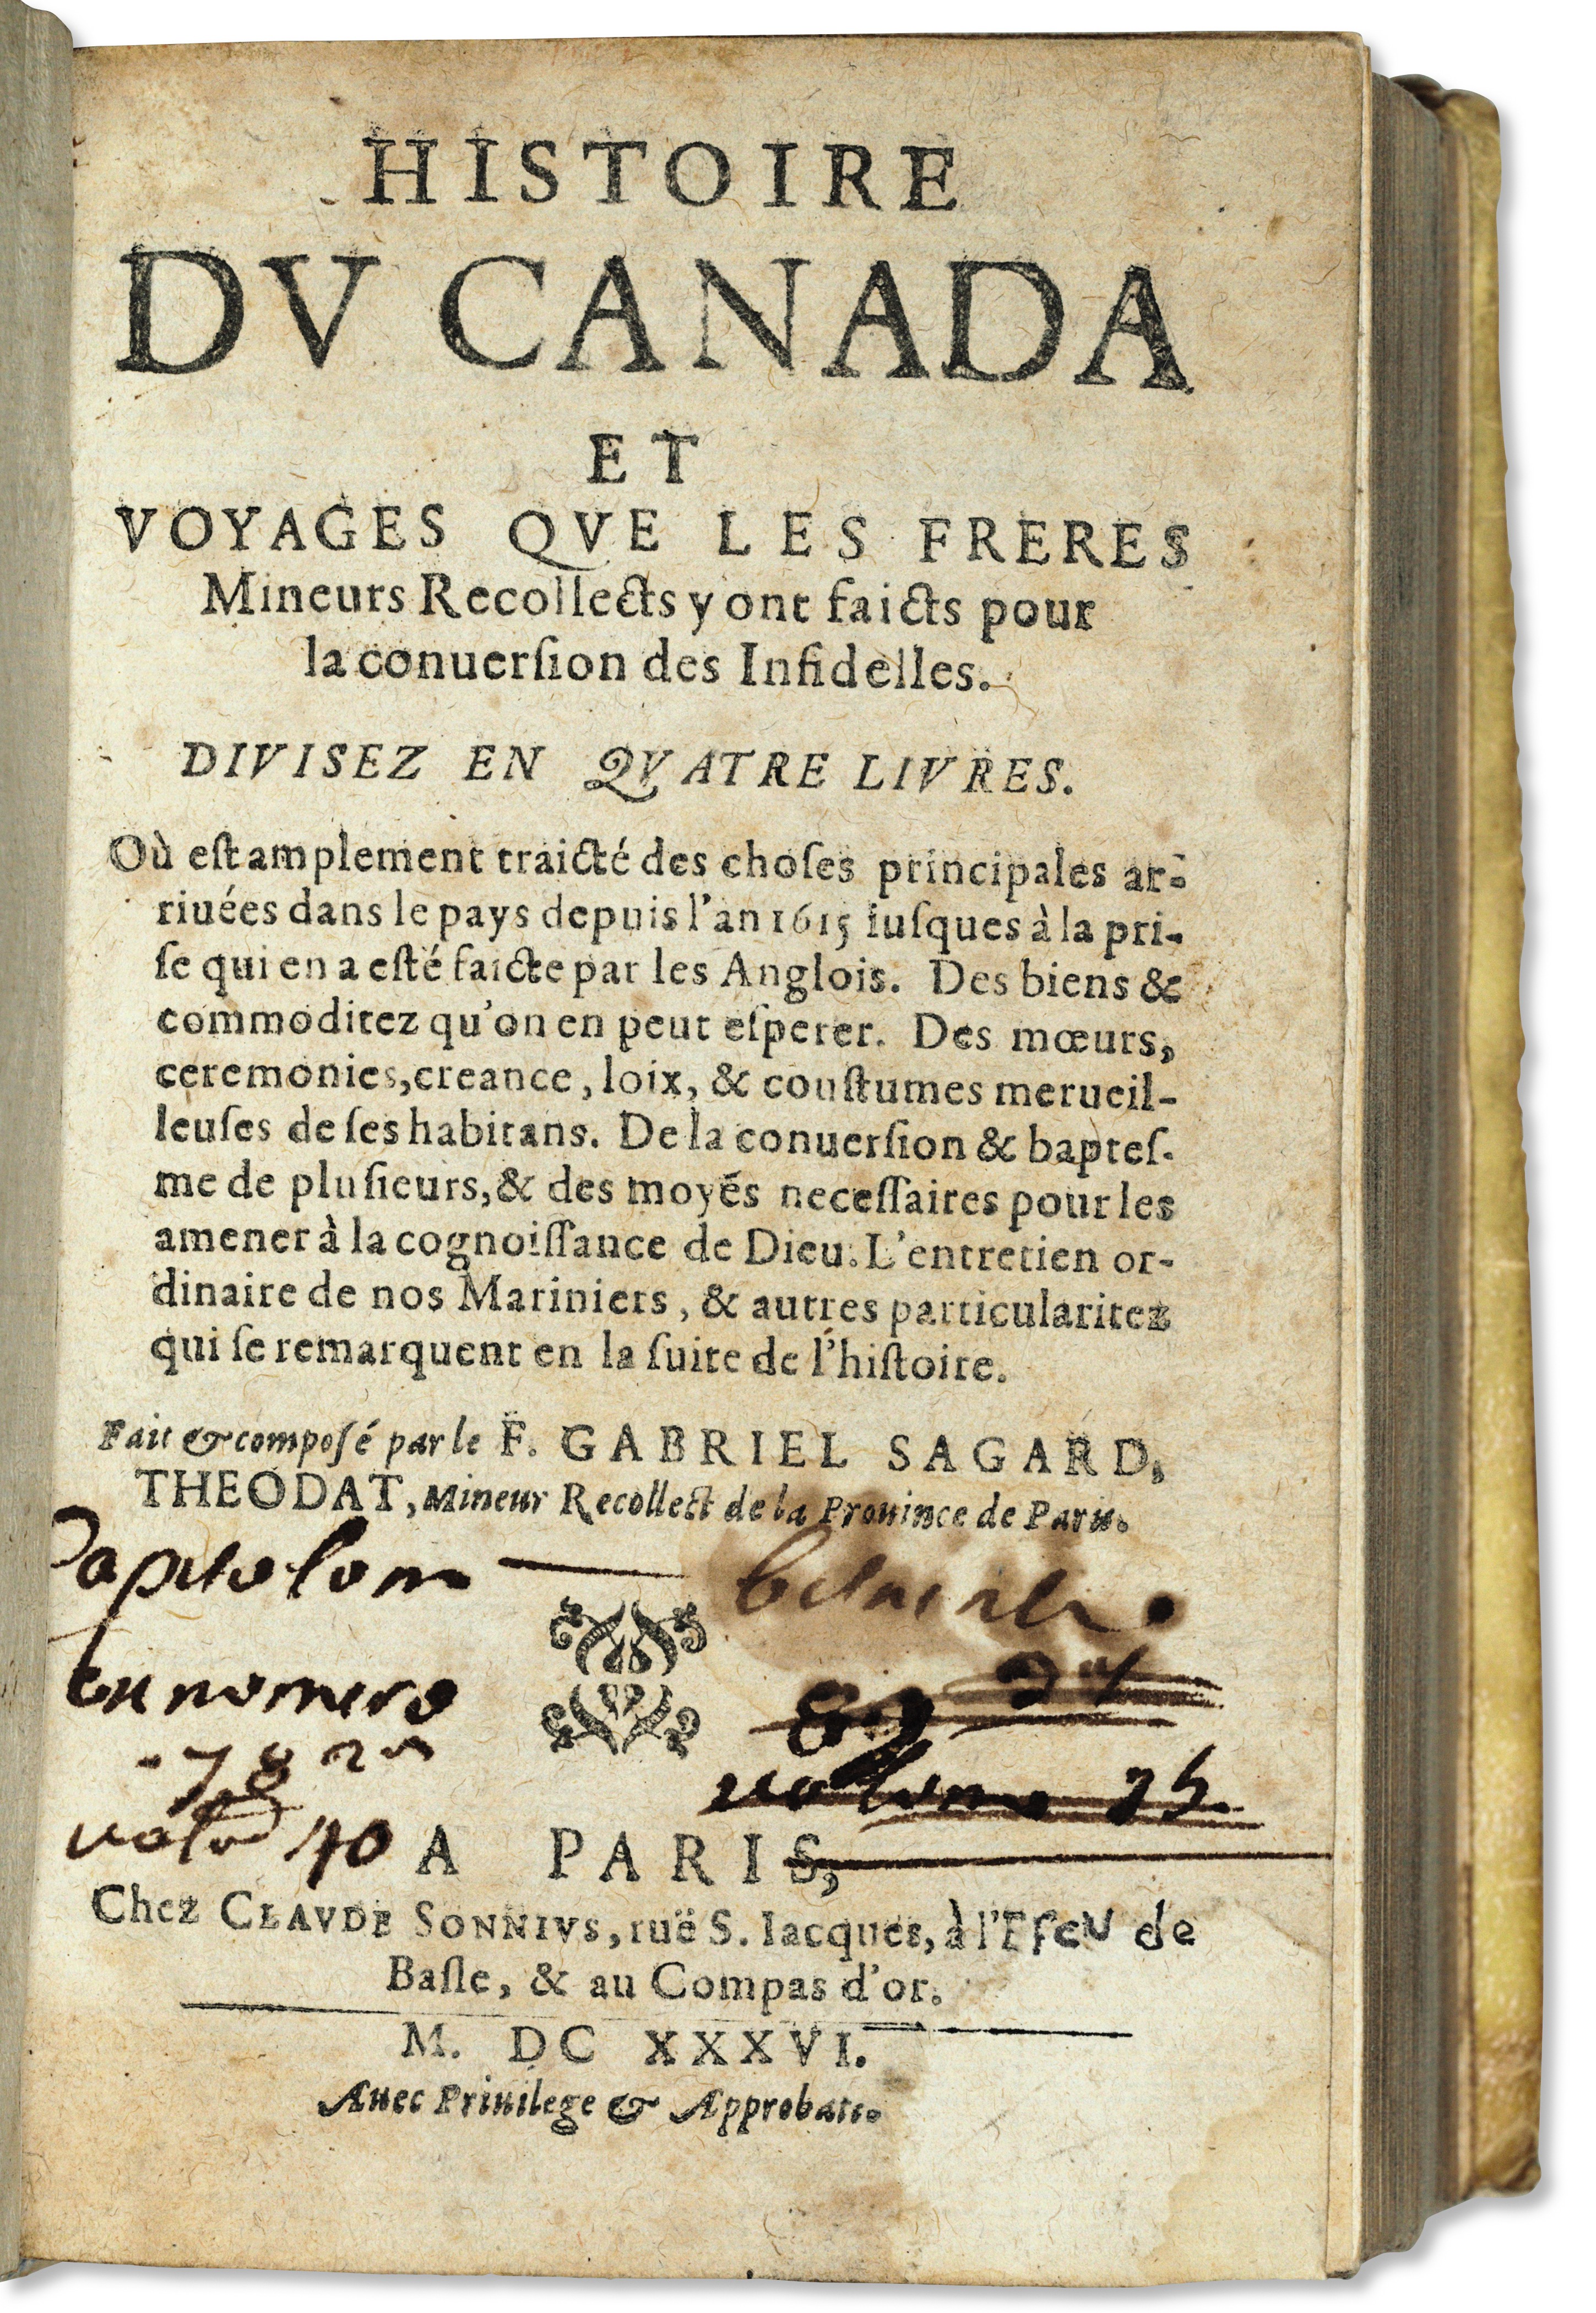 HISTOIRE
DV CANADA
ET
VOYAGES QVE LES FRERES
Mineurs Recollects y ont faicts pour
la conuerſion des Infidelles.
DIVISEZ EN QVATRE LIVRES.
Où eſt amplement traicté des choſes principales ar-
riuées dans le pays depuis l'an 1615 iuſques à la pri-
ſe qui en a eſté faicte par les Anglois. Des biens &
commoditez qu'on en peut eſperer. Des mœurs,
ceremonies, creance, loix, & couſtumes merueil-
leuſes de ſes habitans. De la conuerſion & bapteſ-
me de pluſieurs, & des moyẽs neceſſaires pour les
amener à la cognoiſſance de Dieu. L'entretien or-
dinaire de nos Mariniers, & autres particularitez
qui ſe remarquent en la ſuite de l'hiſtoire.
Fait & compoſé par le F. GABRIEL SAGARD,
THEODAT, Mineur Recollect de la Prouince de Paris.
nomero
volume
40
A PARIS,
Chez CLAVDE SONNIVS, ruë S. Iacques, à l'Eſcu de
Baſle, & au Compas d'or.
M. DC XXXVI.
Auec Priuilege & Approbatio.